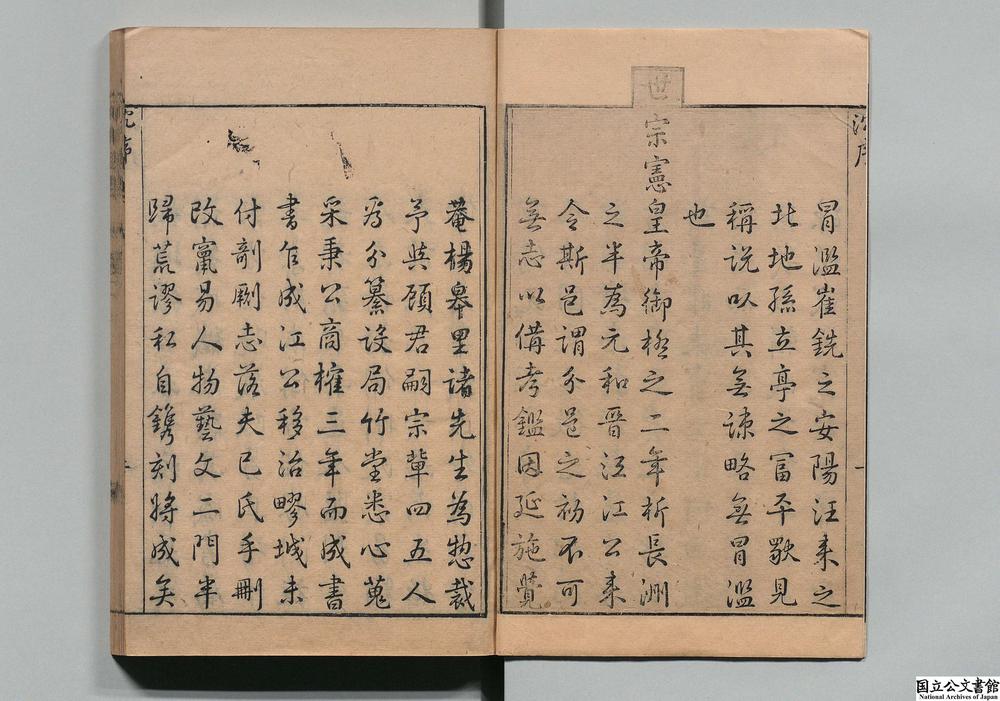 冒濫崔銑之安陽汪来之
北地孫立亭之富平歐見
稱說以其無諫略無冒濫
也
世宗憲皇帝御極之二年析長洲
之半為元和晉江江公来
令斯邑謂分邑之初不可
無志以備考鑑因延施覺
菴楊皋里諸先生為惣裁
予與顧君嗣宗輩四五人
為分纂設局竹堂悉心蒐
采秉公商榷三年而成書
書乍成江公移治嘐城未
付剞劂志落夫己氏手刪
改竄易人物藝文二門半
歸荒謬私自鐫刻將成矣
沈序
一
沈序
国立公文書館
National Archives of Japan